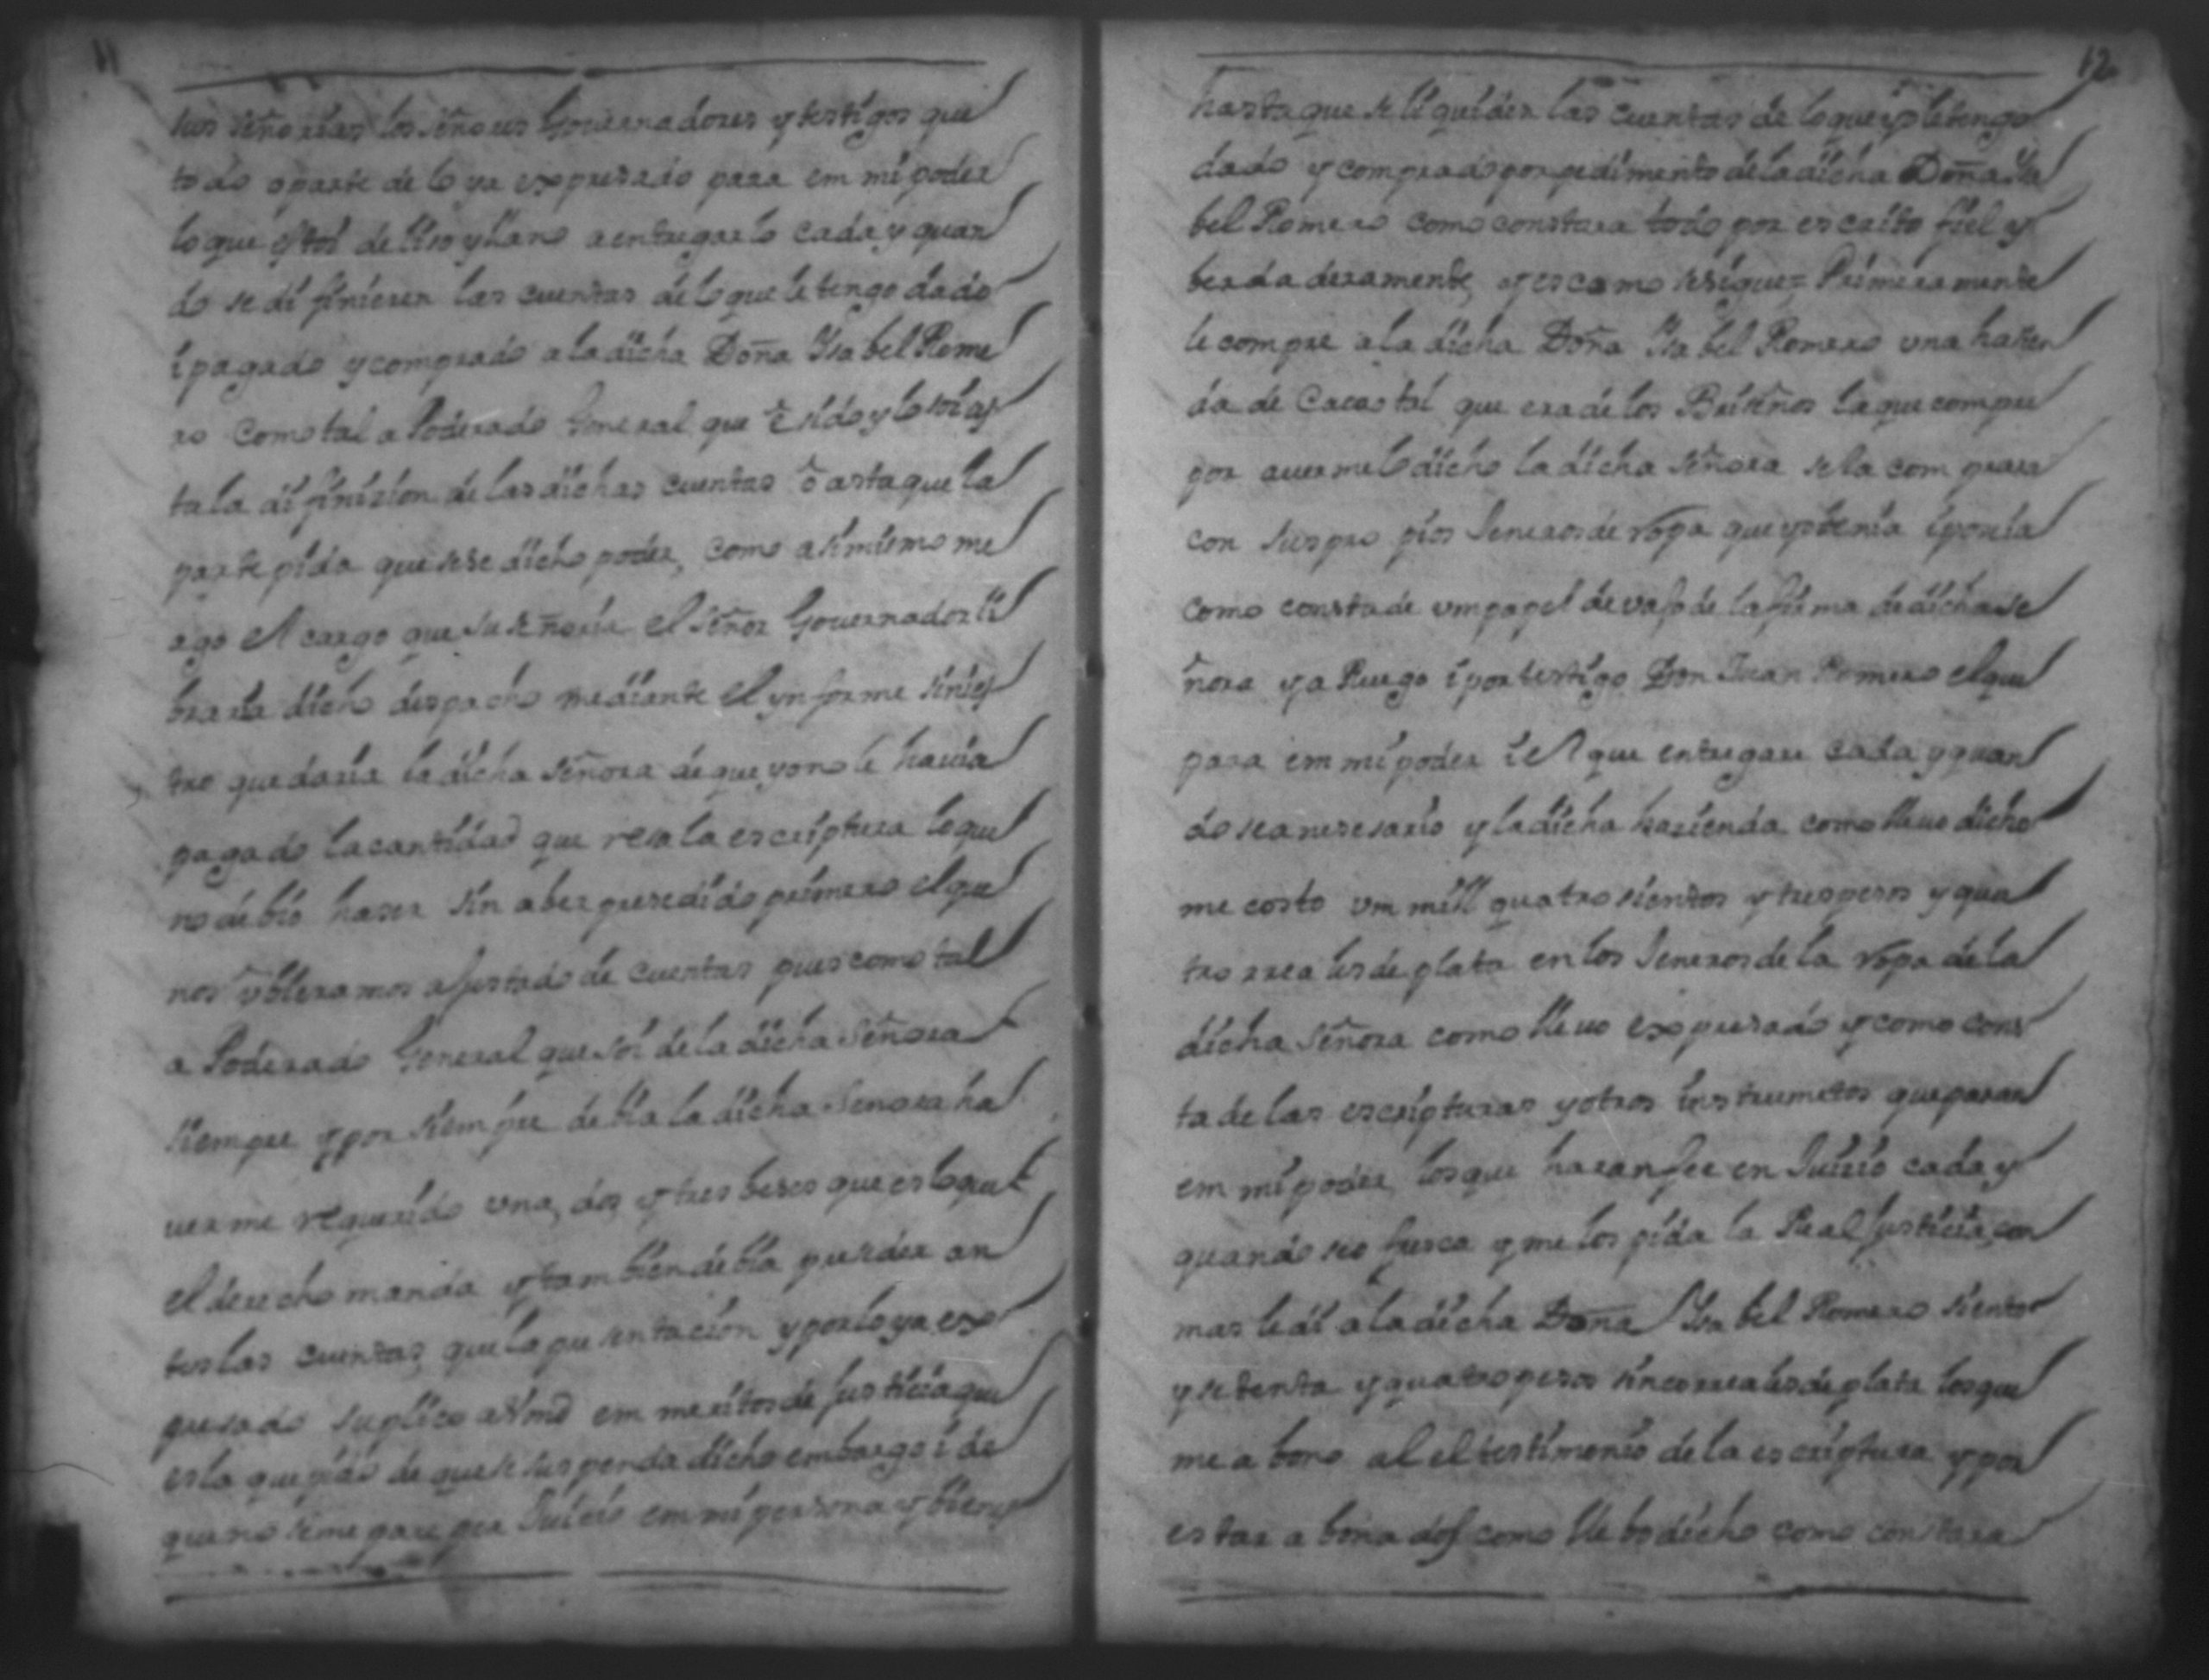 11
sus señorias los señores Governadores y testigos que
todo o parte de lo ya expresado para em mi poder
lo que estoi de liso y llano a entregarlo cada y quan
do se difinieren las cuentas de lo que le tengo dado
i pagado y comprado a la dicha Doña Ysabel Rome
ro Como tal a Poderado General que e sido y lo soi as
ta la difinision de las dichas cuentas o asta que la
parte pida que sese dicho poder, como asimismo me
ago el cargo que su señoria el señor Governador li
braria dicho despacho mediante el ynforme sinies
tro que daria la dicha señora de que yo no le havia
pagado la cantidad que resa la escriptura lo que
no debio haser sin aber presedido primero el que
nos ubieramos ajustado de cuentas pues como tal
a Poderado General que soi de la dicha Señora
siempre y por siempre debia la dicha Señora ha
verme requerido una, dos y tres beses que es lo que
el derecho manda y tambien debia preseder an
tes las cuentas, que la presentacion y por lo ya ex
presado suplico a Vmd em meritos de justicia que
es la que pido de que se suspenda dicho embargo i de
que no se me pare per Juicio em mi persona y bienes
12
hasta que se liquiden las cuentas de lo que yo le tengo
dado y comprado por pedimento de la dicha Doña Ysa
bel Romero como constara todo por escrito fiel y
berdaderamente, y es como se sigue = Primeramente
le compre a la dicha Doña Ysabel Romero una hasien
da de Cacaotal que era de los Briseños la que compre
por avermelo dicho la dicha Señora se la comprara
con sus propios Generos de ropa que yo tenia i ponia
como consta de um papel de vajo de la firma de dicha Se
ñora y a Ruego i por testigo Don Juan Romero el que
para em mi poder i el que entregare cada y quan
do sea nesesario y la dicha hasienda como llevo dicho
me costo um mill quatrosientos y tres pesos y qua
tro rreales de plata en los Generos de la ropa de la
dicha Señora como llevo expresado y como cons
ta de las escripturas y otros instrumetos que paran
em mi poder, los que haran fee en Juicio cada y
quando sea fuerca y me los pida la Real Justicia, con
mas le di a la dicha Doña Ysabel Romero siento
y setenta y quatro pesos sinco rreales de plata los que
me abono al el testimonio de la escriptura y por
estar abonados como llebo dicho como constara